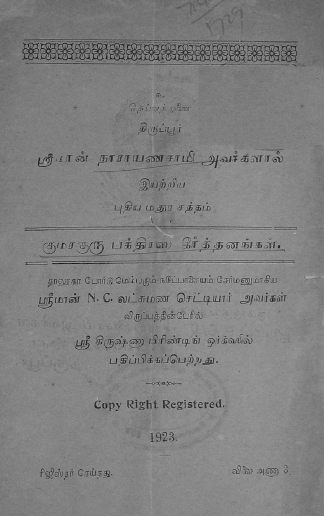 உ
திருப்பூர்
ஸ்ரீமான் நாராயணசாமி அவர்களால்
இயற்றிய
புதிய மதுர சத்தம்
குமரகுரு பக்திரஸ கீர்த்தனங்கள்.
தாலூகா போர்டு மெம்பரும்
ஸ்ரீமான் N. C. லட்சுமண செட்டியார் அவர்கள்
விருப்பத்தின்பேரில்
ஸ்ரீ கிருஷ்ணா பிரிண்டிங் ஒர்க்ஸில்
பதிப்பிக்கப்பெற்றது.
Copy Right Registered.
1923.
ரிஜிஸ்தர் செய்தது.
விலை அணா 3.